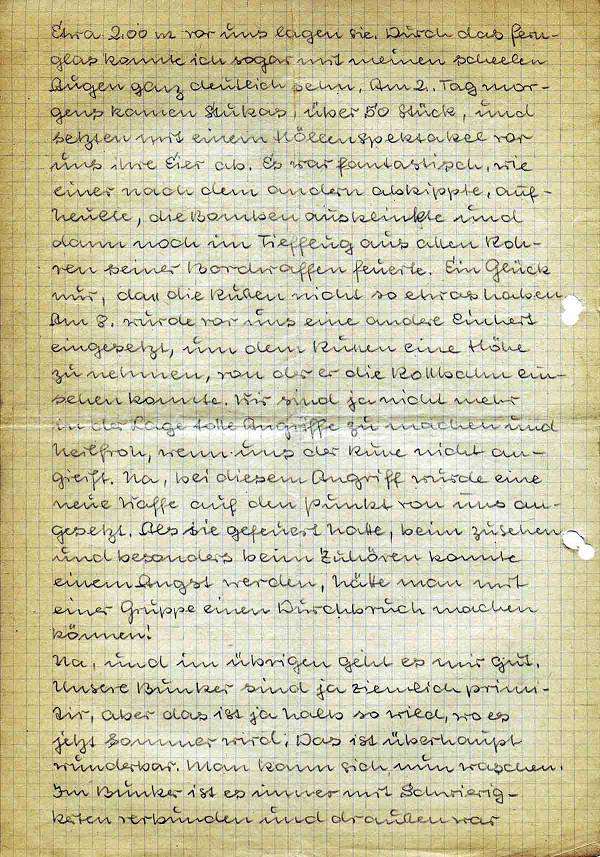 Etwa 200 m vor uns lagen sie. Durch das Fern-
glas konnte ich sogar mit meinen scheelen
Augen ganz deutlich sehn. Am 2. Tag mor-
gens kamen Stukas, über 50 Stück, und
setzten mit einem Höllenspektakel vor
uns ihre Eier ab. Es war fantastisch, wie
einer nach dem andern abkippte, auf-
heulte, die Bomben ausklinkte und
dann noch im Tiefflug aus allen Roh-
ren seiner Bordwaffen feuerte. Ein Glück
nur, daß die Russen nicht so etwas haben.
Am 8. wurde vor uns eine andere Einheit
eingesetzt, um dem Russen eine Höhe
zu nehmen, von der er die Rollbahn ein-
sehen konnte. Wir sind ja nicht mehr
in der Lage tolle Angriffe zu machen und
heilfroh, wenn uns der Russe nicht an-
greift. Na, bei diesem Angriff wurde eine
neue Waffe auf den Punkt von uns an-
gesetzt. Als sie gefeuert hatte, beim zusehen
und besonders beim Zuhören konnte
einem Angst werden, hätte man mit
einer Gruppe einen Durchbruch machen
können!
Na, und im übrigen geht es mir gut.
Unsere Bunker sind ja ziemlich primi-
tiv, aber das ist ja halb so wild, wo es
jetzt Sommer wird. Das ist überhaupt
wunderbar. Man kann sich nun waschen.
Im Bunker ist es immer mit Schwierig-
keiten verbunden und draußen war